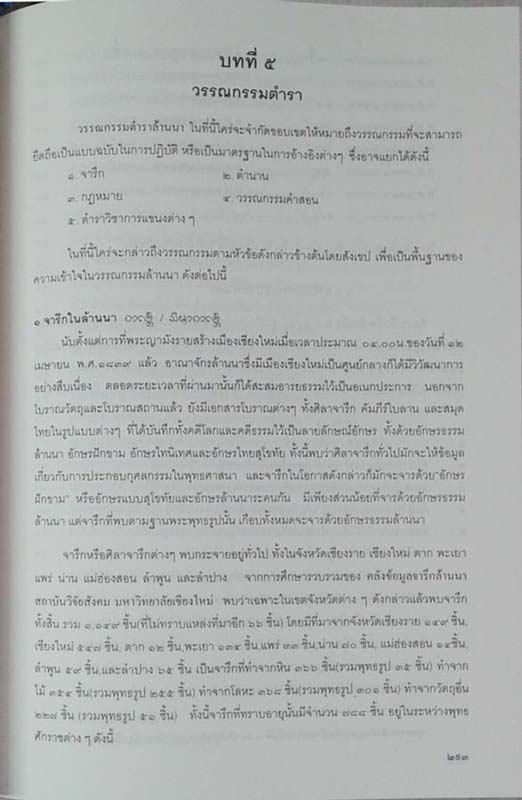 บทที่ ๕
วรรณกรรมตำรา
วรรณกรรมตำราล้านนา ในที่นี้ใคร่จะจำกัดขอบเขตให้หมายถึงวรรณกรรมที่จะสามารถ
ยึดถือเป็นแบบฉบับในการปฏิบัติ หรือเป็นมาตรฐานในการอ้างอิงต่างๆ ซึ่งอาจแยกได้ดังนี้
๑. จารึก ๒. ตำนาน
๓. กฎหมาย ๔. วรรณกรรมคำสอน
๕. ตำราวิชาการแขนงต่าง ๆ
ในที่นี้ใคร่จะกล่าวถึงวรรณกรรมตามหัวข้อดังกล่าวข้างต้นโดยสังเขป เพื่อเป็นพื้นฐานของ
ความเข้าใจในวรรณกรรมล้านนา ดังต่อไปนี้
๑ จารึกในล้านนา
นับตั้งแต่การที่พระญามังรายสร้างเมืองเชียงใหม่เมื่อเวลาประมาณ ๐๔.๐๐น.ของวันที่ ๑๒
เมษายน พ.ศ.๑๘๓๙ แล้ว อาณาจักรล้านนาซึ่งมีเมืองเชียงใหม่เป็นศูนย์กลางก็ได้มีวิวัฒนาการ
อย่างสืบเนื่อง ตลอดระยะเวลาที่ผ่านมานั้นก็ได้สะสมอารยธรรมไว้เป็นเอนกประการ นอกจาก
โบราณวัตถุและโบราณสถานแล้ว ยังมีเอกสารโบราณต่างๆ ทั้งศิลาจารึก คัมภีร์ใบลาน และสมุด
ไทยในรูปแบบต่างๆ ที่ได้บันทึกทั้งคดีโลกและคดีธรรมไว้เป็นลายลักษณ์อักษร ทั้งด้วยอักษรธรรม
ล้านนา อักษรฝักขาม อักษรไทนิเทศและอักษรไทยสุโขทัย ทั้งนี้พบว่าศิลาจารึกทั่วไปมักจะให้ข้อมูล
เกี่ยวกับการประกอบกุศลกรรมในพุทธศาสนา และจารึกในโอกาสดังกล่าวก็มักจะจารด้วย"อักษร
ฝักขาม" หรืออักษรแบบสุโขทัยและอักษรล้านนาระคนกัน มีเพียงส่วนน้อยที่จารด้วยอักษรธรรม
ล้านนา แต่จารึกที่พบตามฐานพระพุทธรูปนั้น เกือบทั้งหมดจะจารด้วยอักษรธรรมล้านนา
จารึกหรือศิลาจารึกต่างๆ พบกระจายอยู่ทั่วไป ทั้งในจังหวัดเชียงราย เชียงใหม่ ตาก พะเยา
แพร่ น่าน แม่ฮ่องสอน ลำพูน และลำปาง จากการศึกษารวบรวมของ คลังข้อมูลจารึกล้านนา
สถาบันวิจัยสังคม มหาวิทยาลัยเชียงใหม่ พบว่าเฉพาะในเขตจังหวัดต่าง ๆ ดังกล่าวแล้วพบจารึก
ทั้งสิ้น รวม ๑,๑๔๙ ชิ้น(ที่ไม่ทราบแหล่งที่มาอีก ๖๖ ชิ้น) โดยมีที่มาจากจังหวัดเชียงราย ๑๔๙ ชิ้น,
เชียงใหม่ ๕๔๗ ชิ้น, ตาก ๑๒ ชิ้น,พะเยา ๑๓๔ ชิ้น,แพร่ ๓๓ ชิ้น,น่าน ๗๐ ชิ้น, แม่ฮ่องสอน ๑๔ชิ้น,
ลำพูน ๕๙ ชิ้น,และลำปาง ๖๕ ชิ้น เป็นจารึกที่ทำจากหิน ๓๖๖ ชิ้น(รวมพุทธรูป ๓๕ ชิ้น) ทำจาก
ไม้ ๓๕๔ ชิ้น(รวมพุทธรูป ๒๕๕ ชิ้น) ทำจากโลหะ ๓๖๘ ชิ้น(รวมพุทธรูป ๓๐๑ ชิ้น) ทำจากวัตถุอื่น
๒๒๗ ชิ้น (รวมพุทธรูป ๕๑ ชิ้น) ทั้งนี้จารึกที่ทราบอายุนั้นมีจำนวน ๗๘๘ ชิ้น อยู่ในระหว่างพุทธ
ศักราชต่าง ๆ ดังนี้
๒๙๓